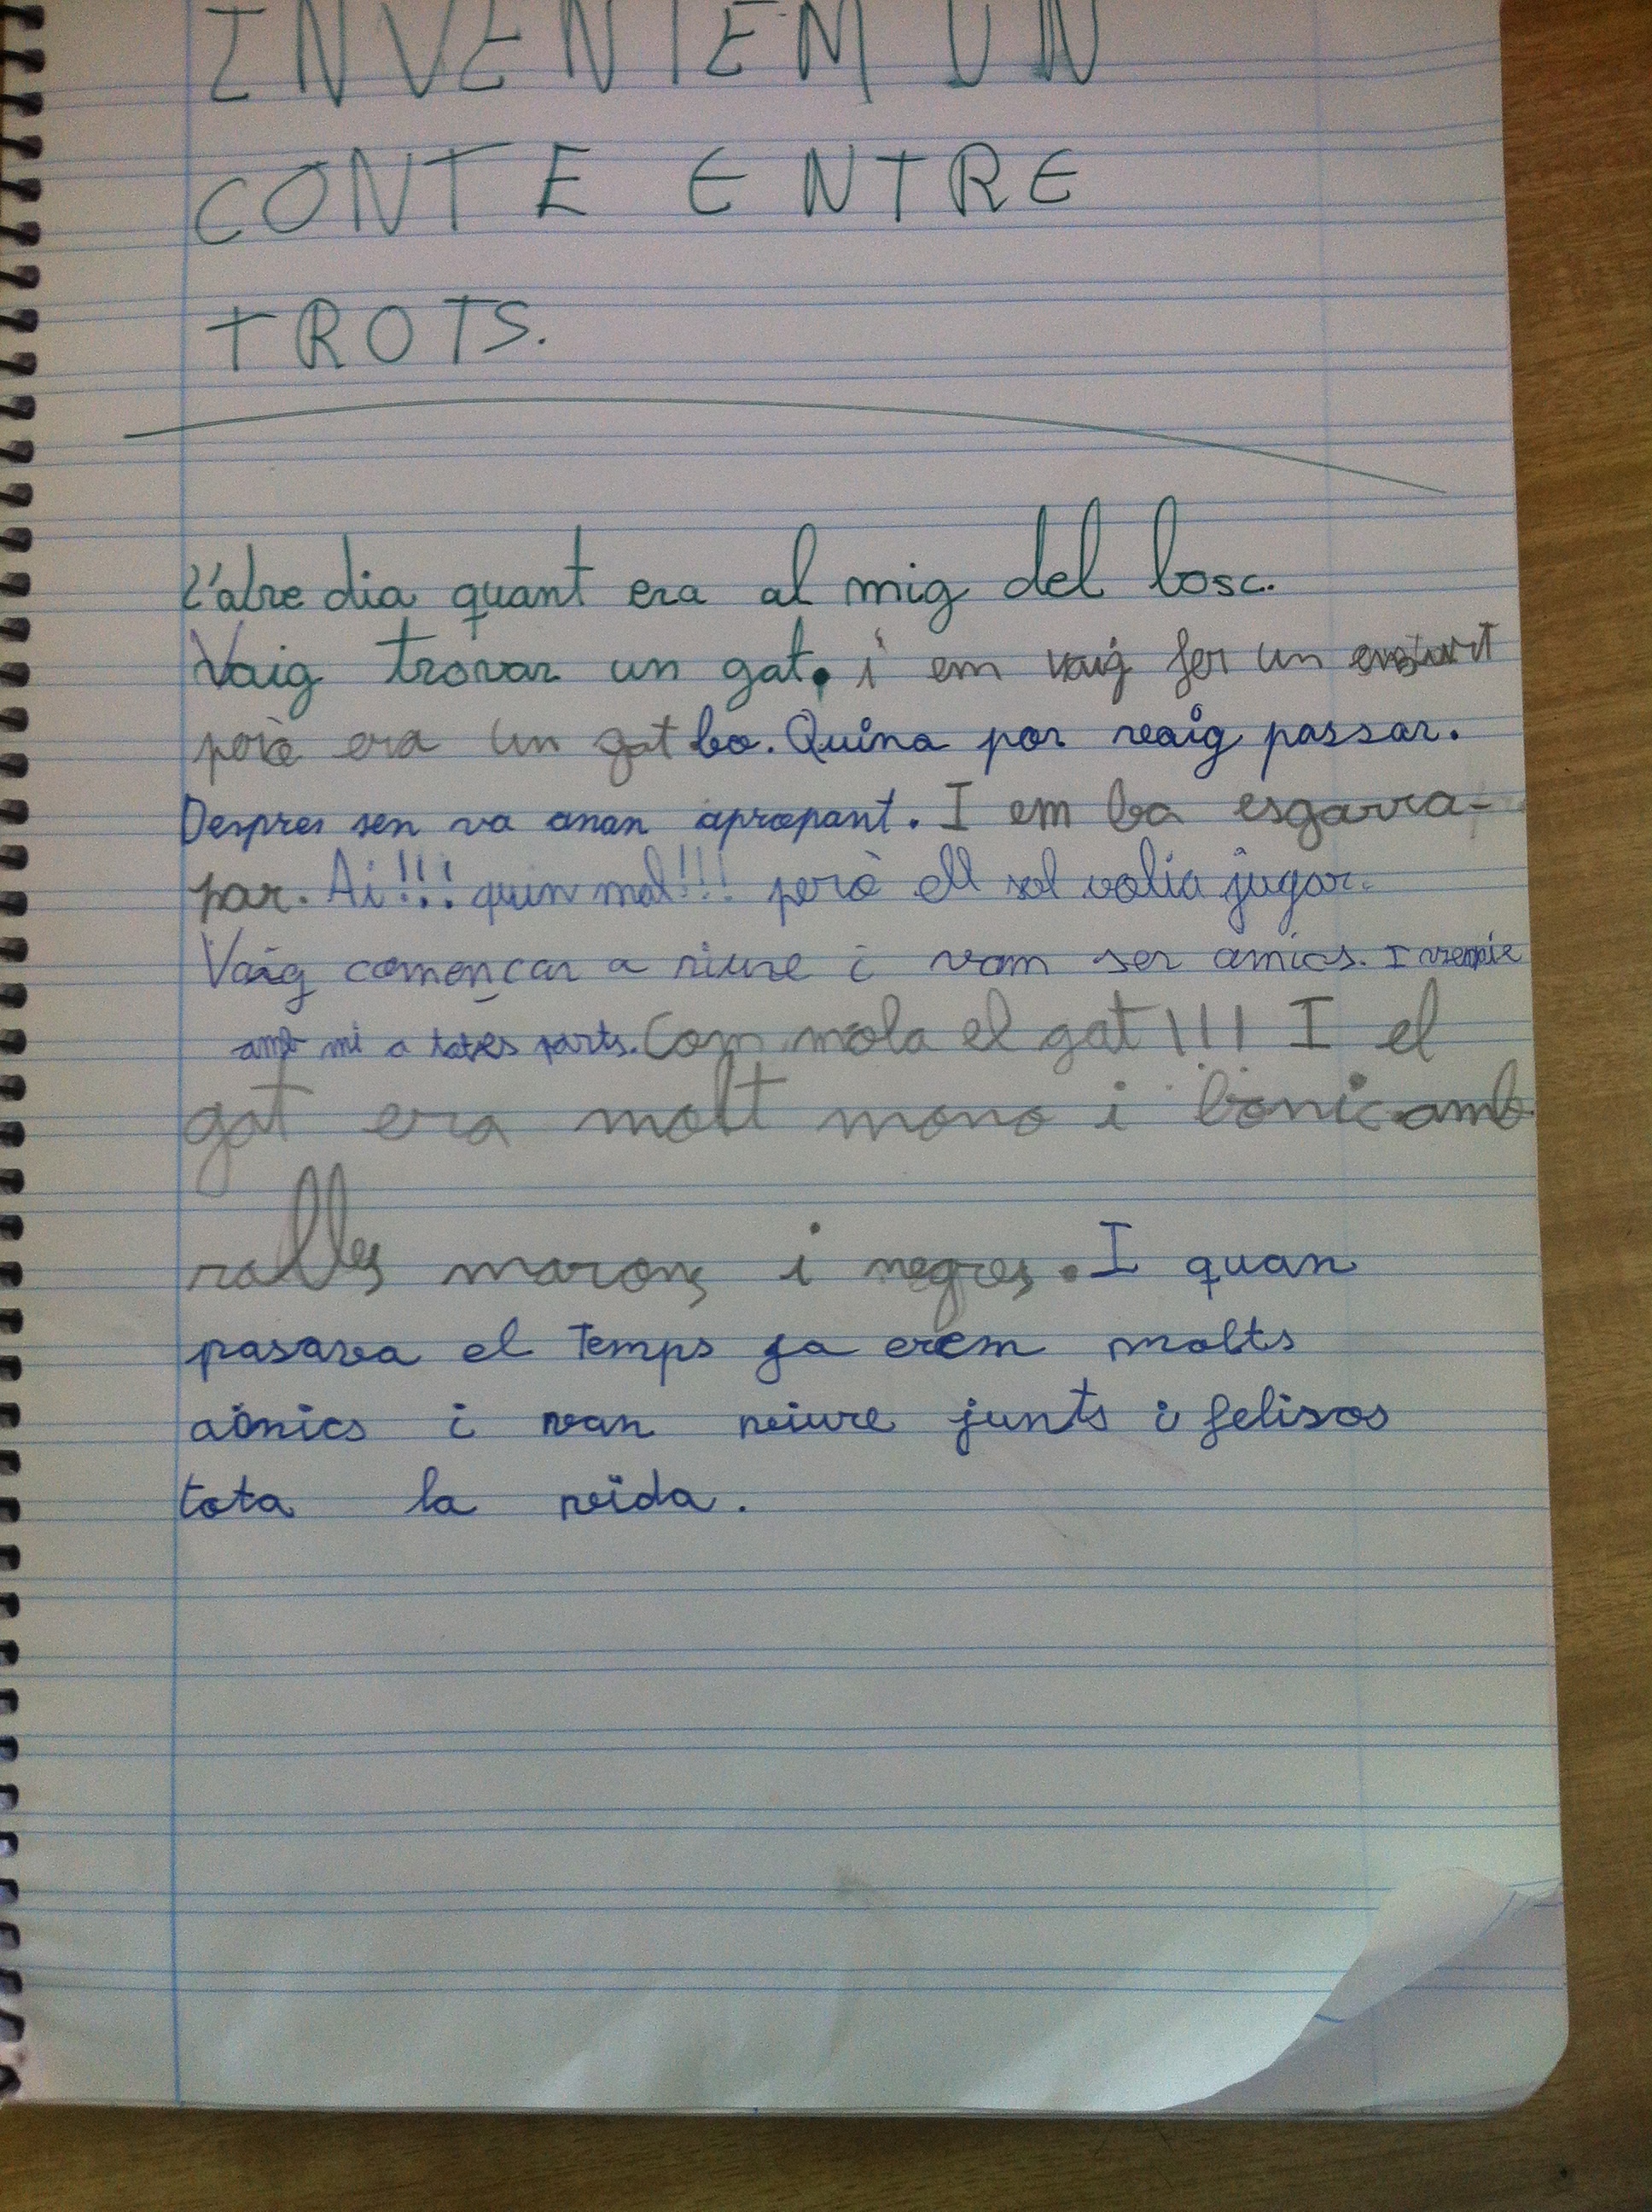 INVENTEM UN
CONTE ENTRE
TROTS.
L'altre dia quant era al mig del bosc.
Vaig trovar un gat. i em vaig fer un ensurt
però era un gat bo. Quina por vaig passar.
Despres sen va anan apropant. I em ba esgarra-
par. Ai!!! quin mal!!! però ell sol volia jugar.
Vaig començar a riure i vam ser amics. I venie
amb mi a totes parts. Com mola el gat!!! I el
gat era molt mono i bonic amb
ralles marons i negres. I quan
pasava el temps ja erem molts
amics i van viure junts i felisos
tota la vida.